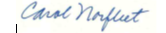 Carol Norfleet